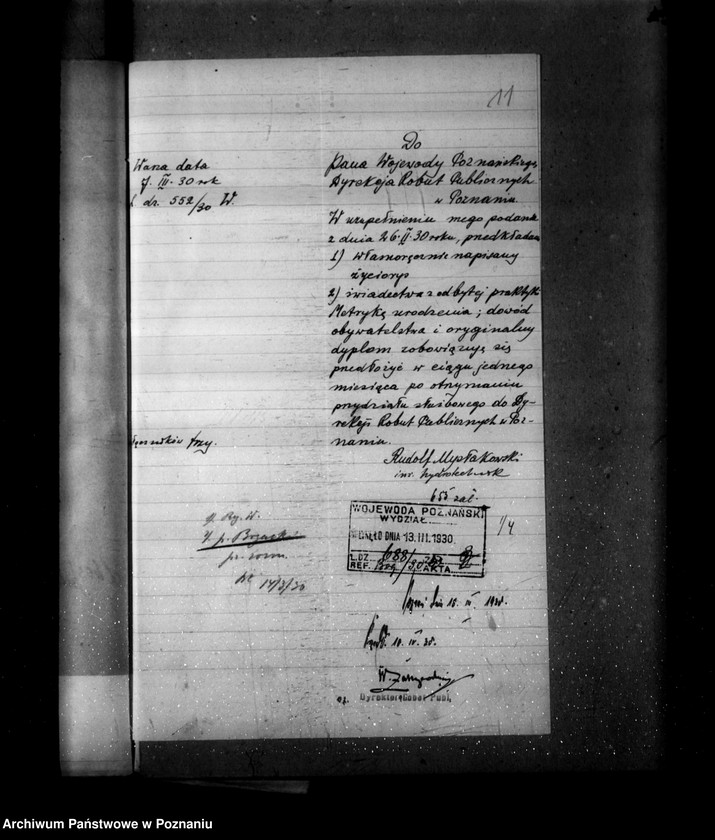 11
Do
Pana Wojewody Poznańskiego
Dyrekcja Robut Publicznych
w Poznaniu.
Wasza data
7. III. 30 rok
l dz. 552/30 W.
W uzupełnieniu mego podania
z dnia 26. II. 30 roku, przedkładam
1) własnoręcznie napisany
życiorys
2) świadectwa z odbytej praktyki
Metrykę urodzenia; dowód
obywatelstwa i oryginalny
dyplom zobowiązuję się
przedłożyć w ciągu jednego
miesiąca po otrzymaniu
przydziału służbowego do Dy-
rekcji Robut Publicznych w Poz-
nania.
trzy.
Rudolf Mysłakowski
inż. hydrotechnik
WOJEWODA POZNAŃSKI
WYDZIAŁ
DNIA 13. III. 1930.
L.DZ. 688/30
REF. AKTA
1/4
14/3/30
Dyrektor Robót Publ.
Archiwum Państwowe w Poznaniu